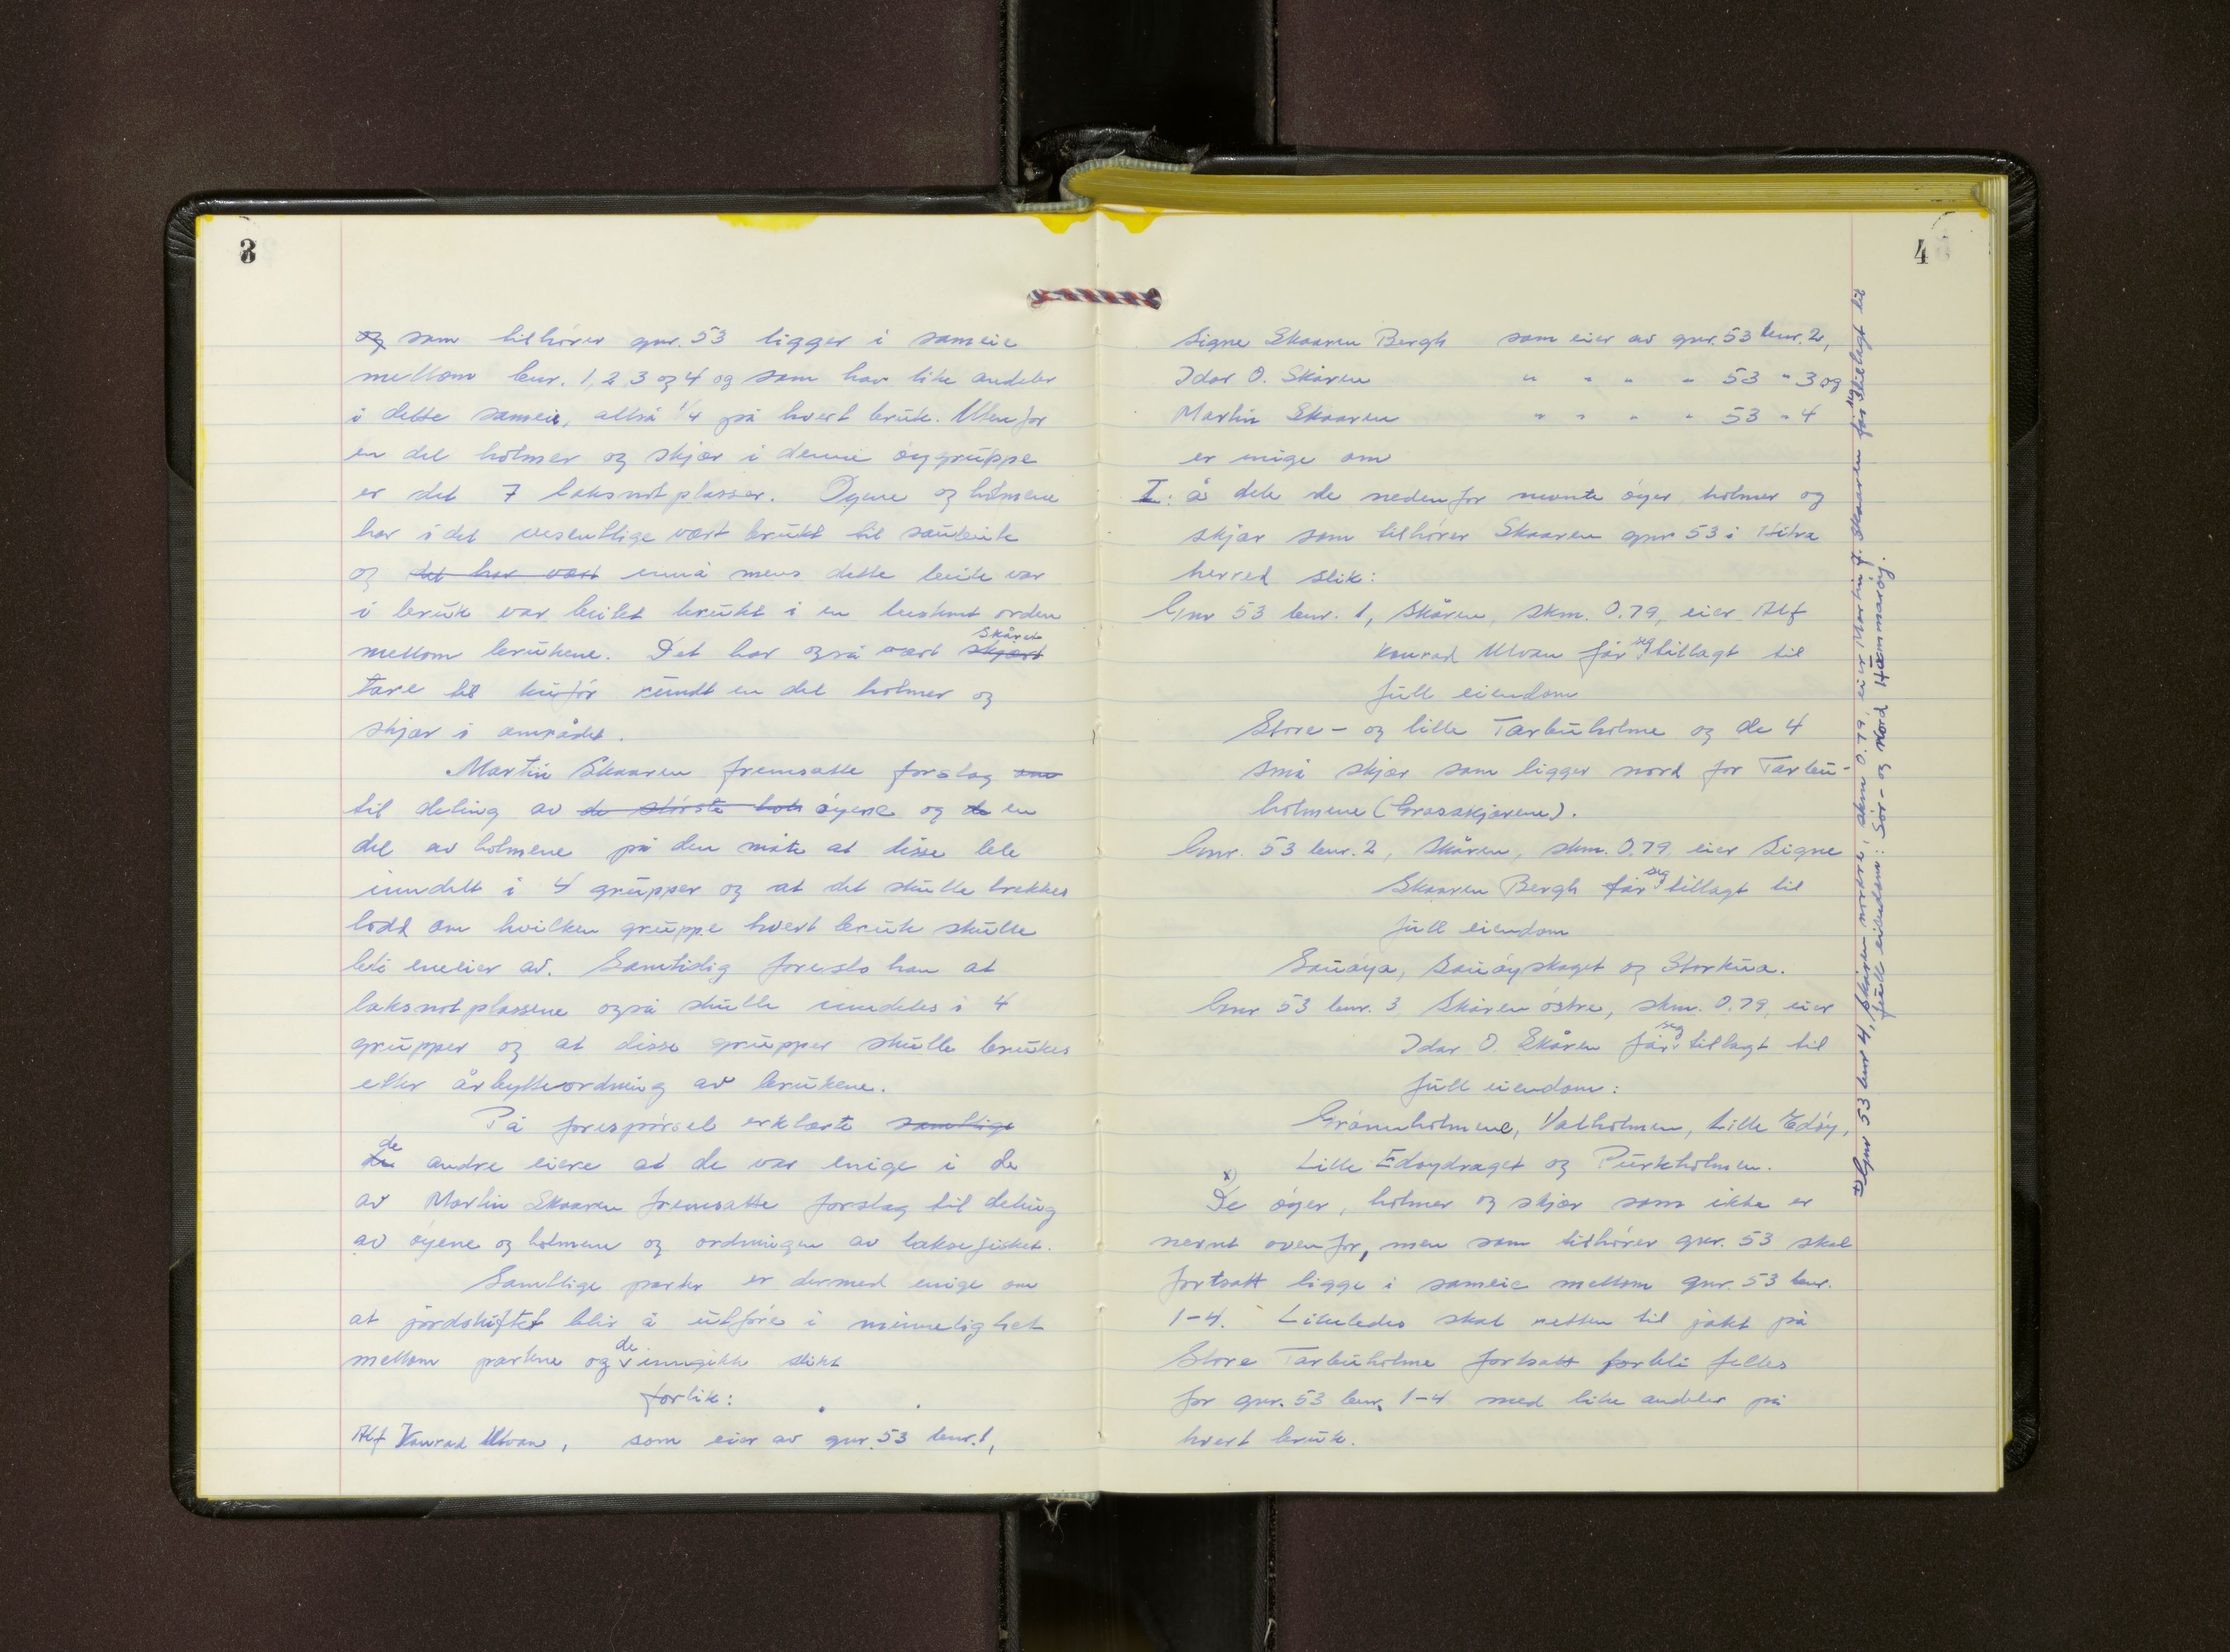 3
og som tilhører gnr. 53 ligger i sameie
mellom bnr. 1, 2, 3 og 4 og som har like andeler
i dette sameie, altså 1/4 på hvert bruk. Utenfor
en del holmer og skjær i denne øygruppe
er det 7 laksnotplasser. Øyene og holmene
har i det vesentlige vært brukt til saubeite
og det har vært ennå mens dette beite var
i bruk var beitet brukt i en bestemt orden
skåret
mellom brukene. Det har også vært skjært
tare til kufór rundt en del holmer og
skjær i området.
Martin Skaaren fremsatte forslag om
til deling av de største hol øyene og de en
del av holmene på den måte at disse ble
inndelt i 4 grupper og at det skulle trekkes
lodd om hvilken gruppe hvert bruk skulle
bli eneeier av. Samtidig foreslo han at
laksnotplassene også skulle inndeles i 4
grupper og at disse grupper skulle brukes
etter årbytteordning av brukene.
På forespørsel erklærte samtlige
de
andre eiere at de var enige i de
av Martin Skaaren fremsatte forslag til deling
av øyene og holmene og ordningen av laksefisket.
Samtlige parter er dermed enige om
at jordskiftet blir å utføre i minnelighet
de
mellom partene og inngikk slikt
forlik:
Alf Konrad Ulvan, som eier av gnr. 53 bnr. 1,
4
Signe Skaaren Bergh som eier av gnr. 53 bnr. 2,
Idar O. Skåren " " " " 53 " 3 og
Martin Skaaren " " " " 53 " 4
er enige om
I: å dele de nedenfor nevnte øyer, holmer og
skjær som tilhører Skaaren gnr 53 i Hitra
herred slik:
Gnr 53 bnr. 1, Skåren, skm. 0.79, eier Alf
Konrad Ulvan får seg tillagt til
full eiendom
Store- og lille Tarbuholme og de 4
små skjær som ligger nord for Tarbu-
holmene (Grasskjærene).
Gnr. 53 bnr. 2, Skåren, skm. 0.79, eier Signe
Skaaren Bergh får seg tillagt til
full eiendom
Sauøya, Sauøyskaget og Storkua.
Gnr 53 bnr. 3, Skåren østre, skm. 0.79, eier
Idar O. Skåren får seg tillagt til
full eiendom:
Grønnholmene, Valholmen, Lille Edøy,
Lille Edøydraget og Purkholmen.
x)
De øyer, holmer og skjær som ikke er
nevnt ovenfor, men som tilhører gnr. 53 skal
fortsatt ligge i sameie mellom gnr. 53 bnr.
1-4. Likeledes skal retten til jakt på
Store Tarbuholme fortsatt forbli felles
for gnr. 53 bnr. 1-4 med like andeler på
hvert bruk.
x) Gnr 53 bnr 4, Skåren nordre, skm 0.79, eier Martin J. Skaaren får seg tillagt til
full eiendom: Sør- og Nord Hammarøy.